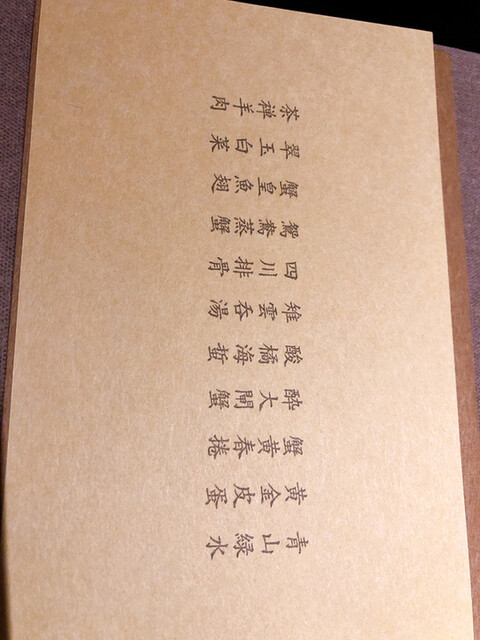 青山緑水
黄金皮蛋
蟹黄春捲
醉大閘蟹
酸橘海蜇
雉雲呑湯
四川排骨
鴛鴦蒸蟹
蟹皇魚翅
翠玉白菜
茶禅羊肉